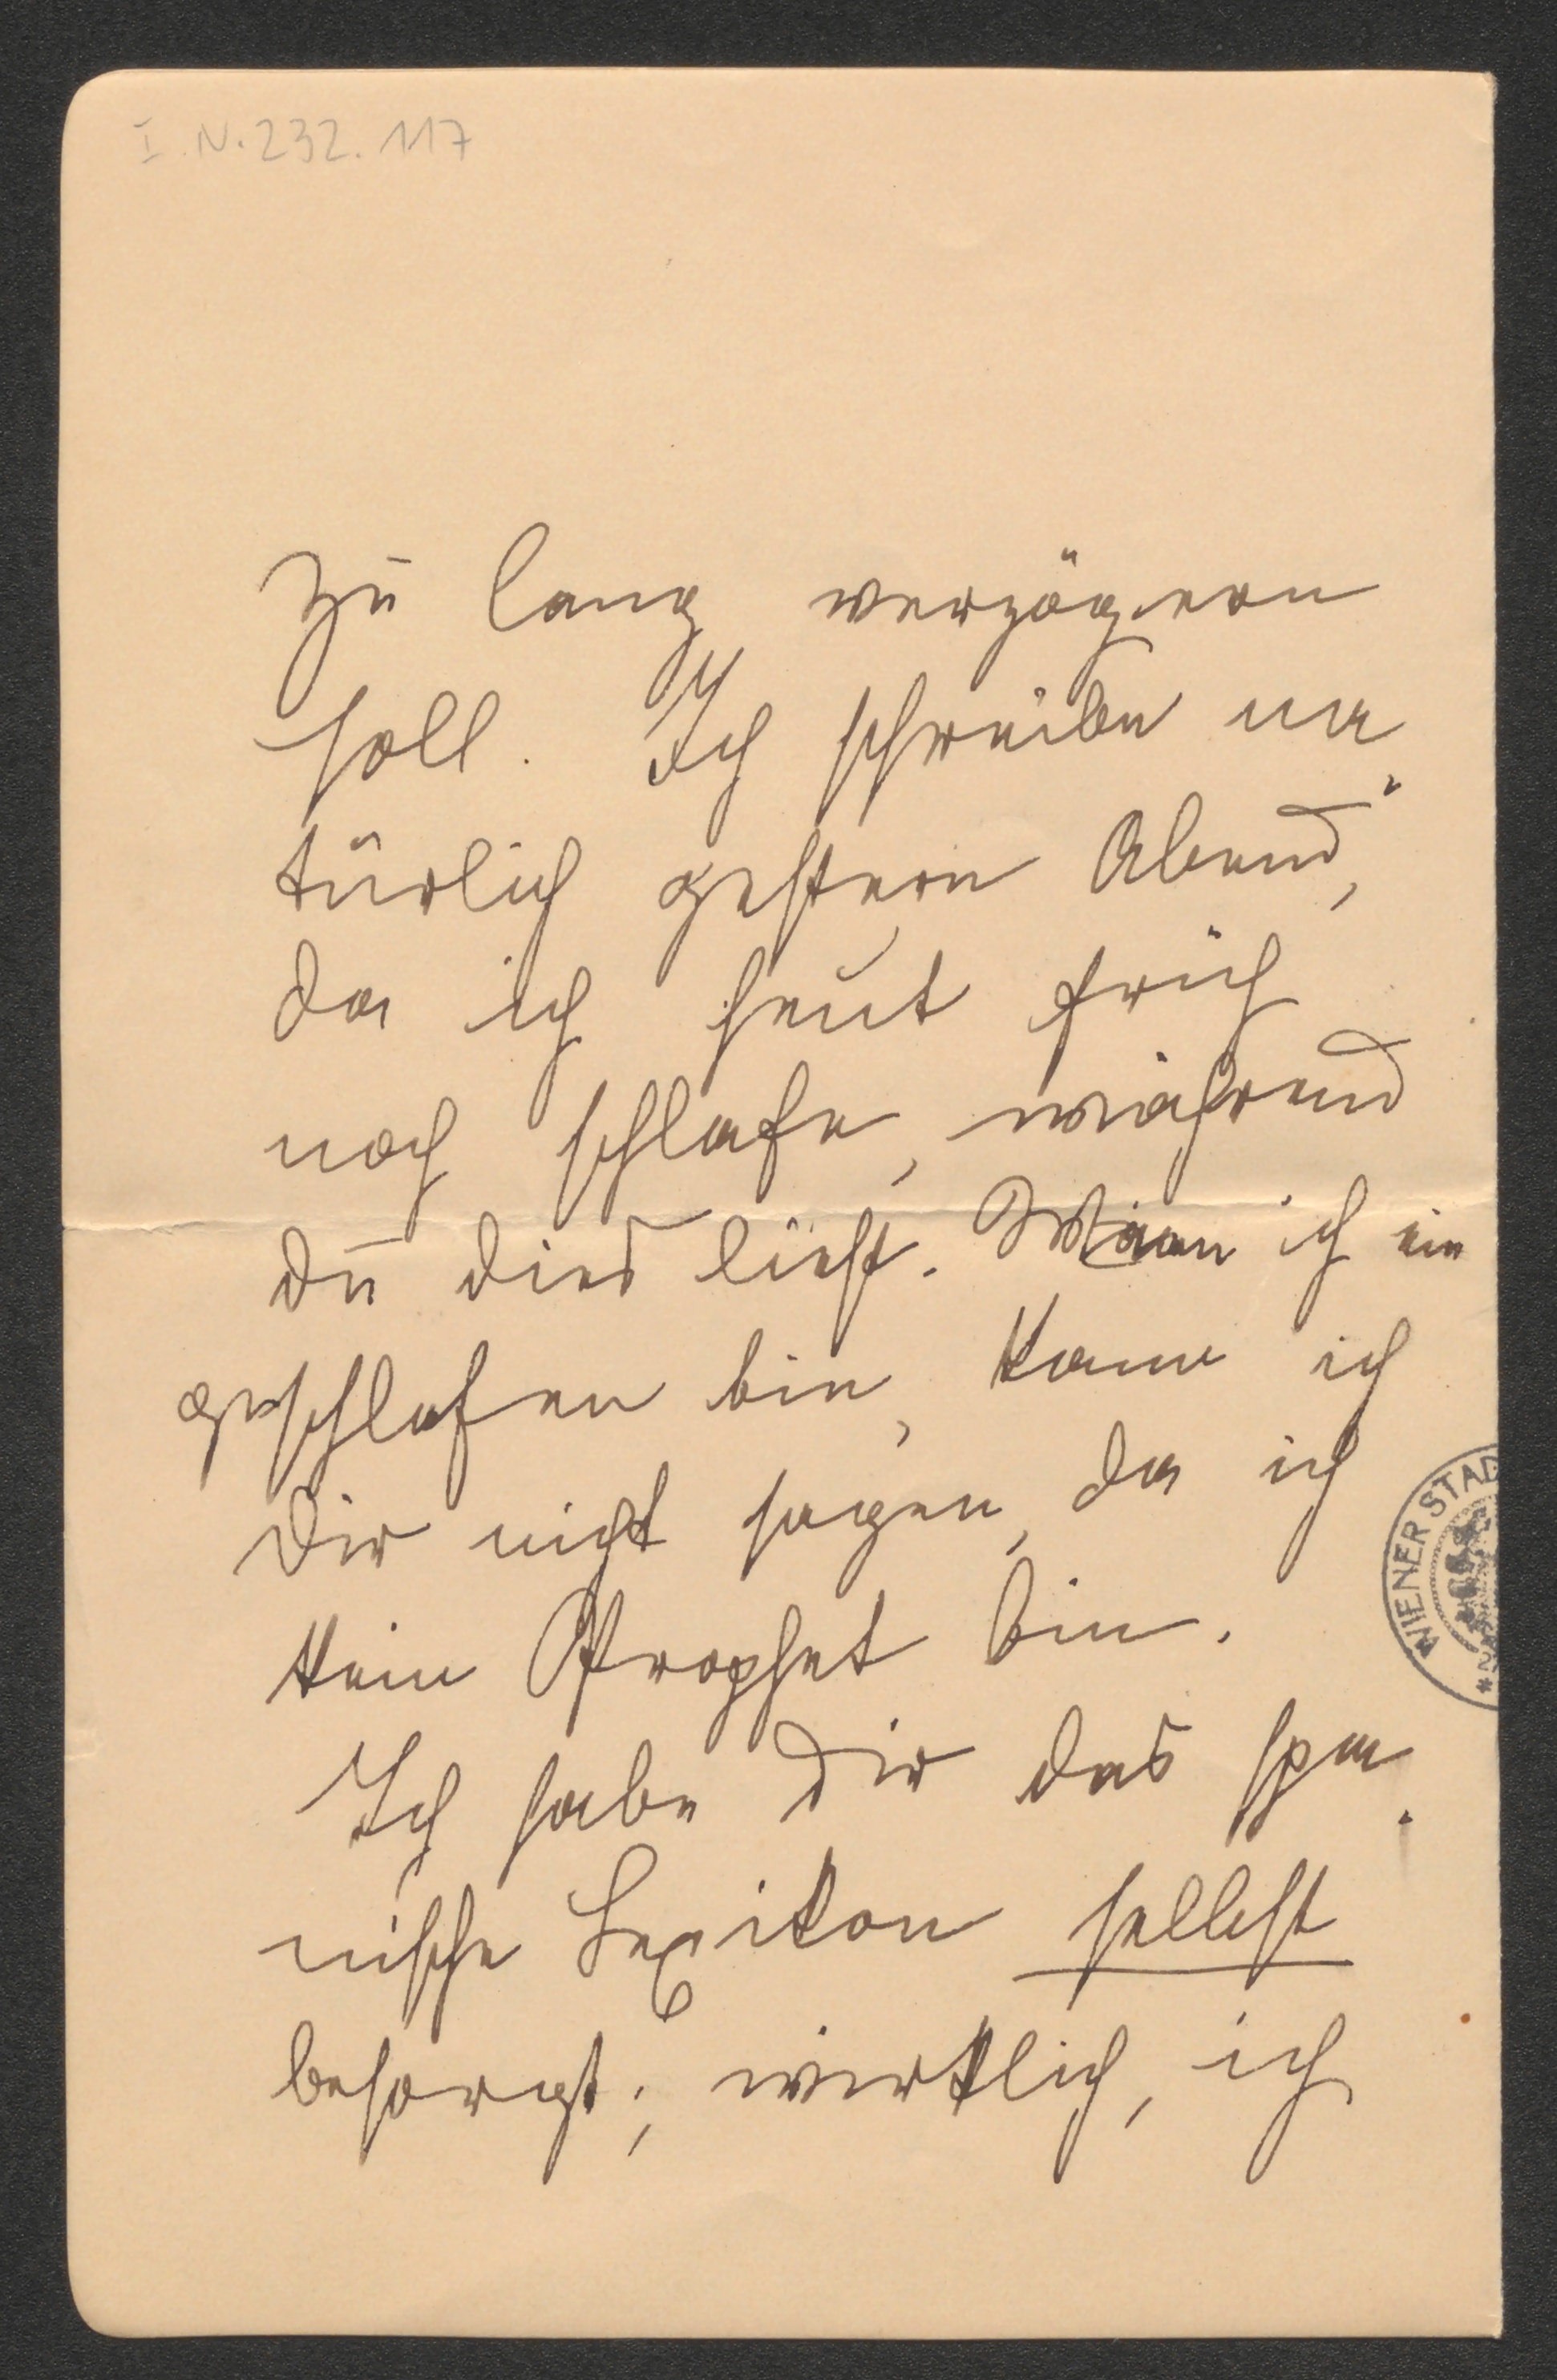 I.N. 232.117
zu lang verzögern
soll. Ich schreibe na¬
türlich gestern Abend,
da ich heut früh
noch schlafe, während
du dies liest. Wann ich ein
geschlafen bin, kann ich
Dir nicht sagen, da ich
kein Prophet bin.
Ich habe Dir das spa¬
nische Lexikon selbst
besorgt; wirklich, ich
WIENER STAD